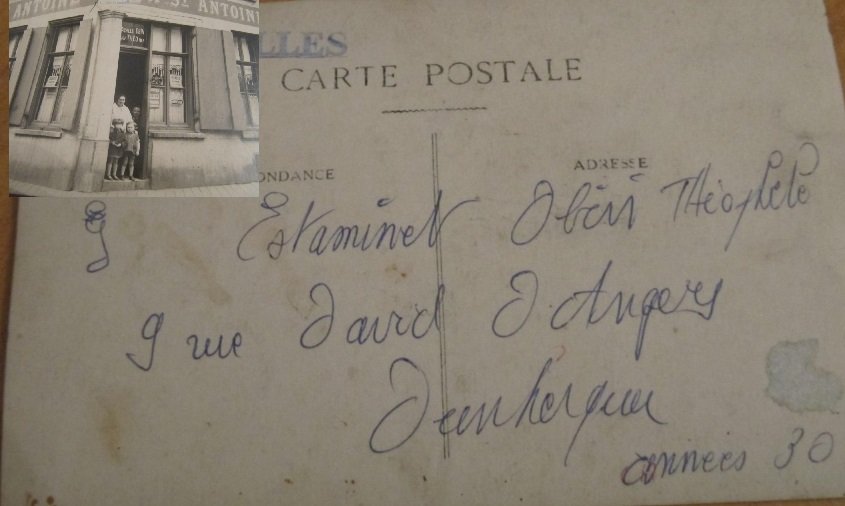 ANTOINE ST ANTOINE
LLES
CARTE POSTALE
ONDANCE
ADRESSE
Estaminet Obéri Théophile
9 rue David D'Angers
Dunkerque
années 30